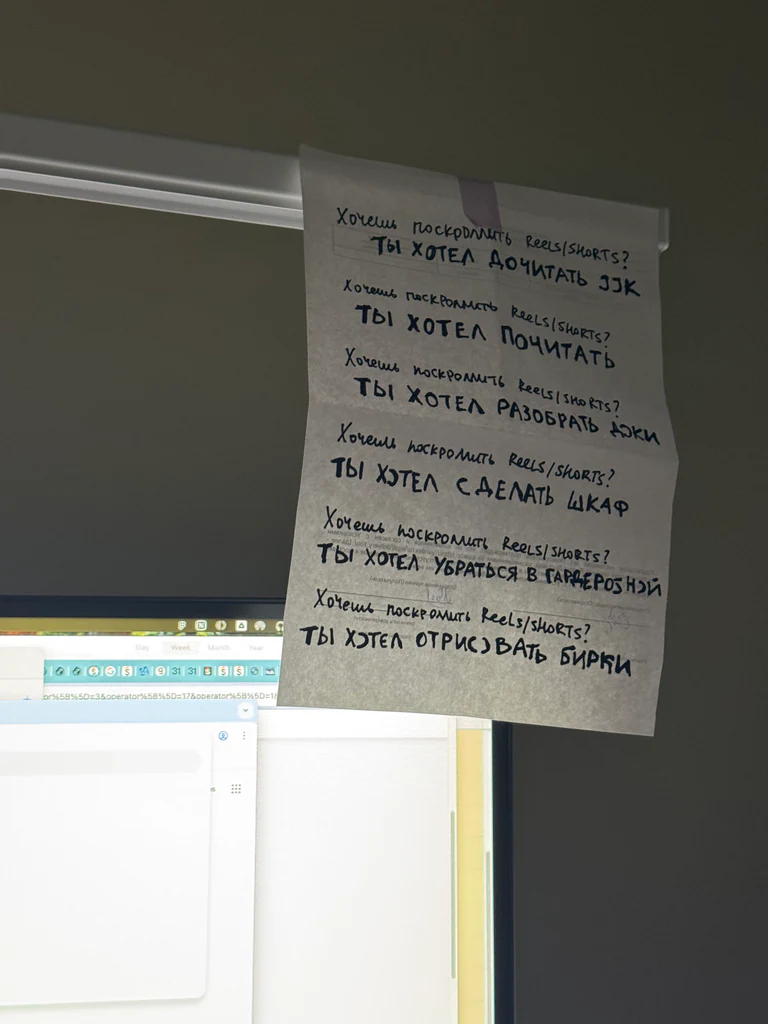 Хочешь поскроллить Reels/SHORTS?
ТЫ ХОТЕЛ ДОЧИТАТЬ JJK
Хочешь поскроллить Reels/SHORTS?
ТЫ ХОТЕЛ ПОЧИТАТЬ
Хочешь поскроллить Reels/SHORTS?
ТЫ ХОТЕЛ РАЗОБРАТЬ ДОКИ
Хочешь поскроллить Reels/SHORTS?
ТЫ ХОТЕЛ СДЕЛАТЬ ШКАФ
Хочешь поскроллить Reels/SHORTS?
ТЫ ХОТЕЛ УБРАТЬСЯ В ГАРДЕРОБНОЙ
Хочешь поскроллить Reels/SHORTS?
ТЫ ХОТЕЛ ОТРИСОВАТЬ БИРКИ
Day Week Month Year
or%5B%5D=3&operator%5B%5D=17&operator%5B%5D=1